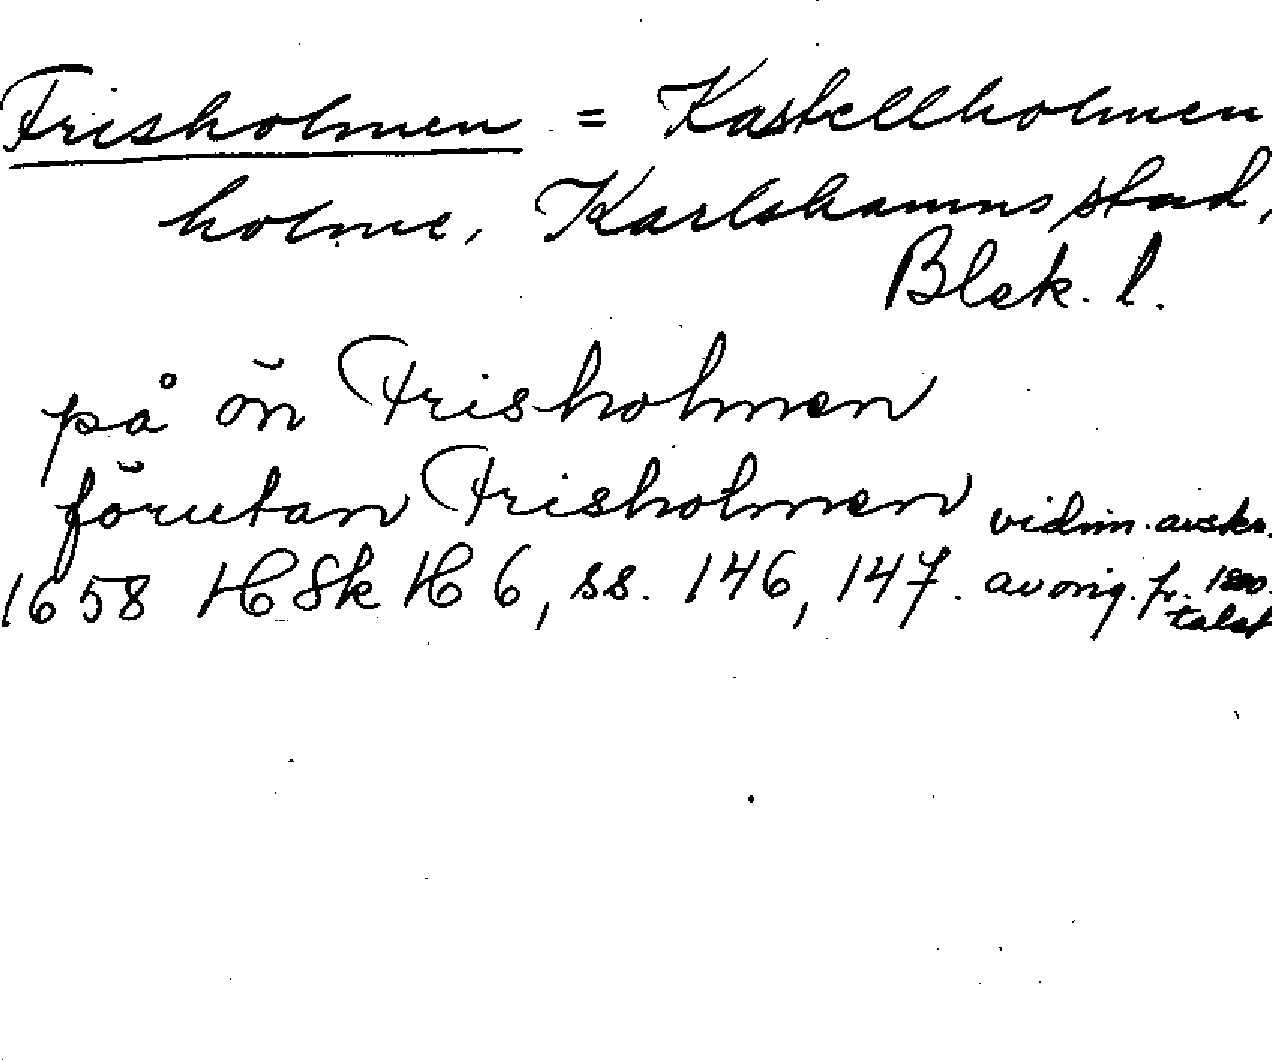 Frisholmen = Kastellholmen
holme, Karlshamns stad,
Blek. l.
på ön Frisholmen
förutan Frisholmen vidim. avskr.
1658 HSk H 6, ss. 146, 147. av orig. fr. 1600-
talet